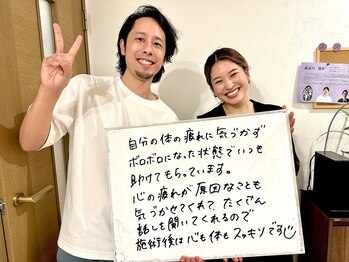 自分の体の疲れに気づかず
ボロボロになった状態でいつも
助けてもらっています。
心の疲れが原因なことも
気づかせてくれて、たくさん
話しを聞いてくれるので
施術後は心も体もスッキリです